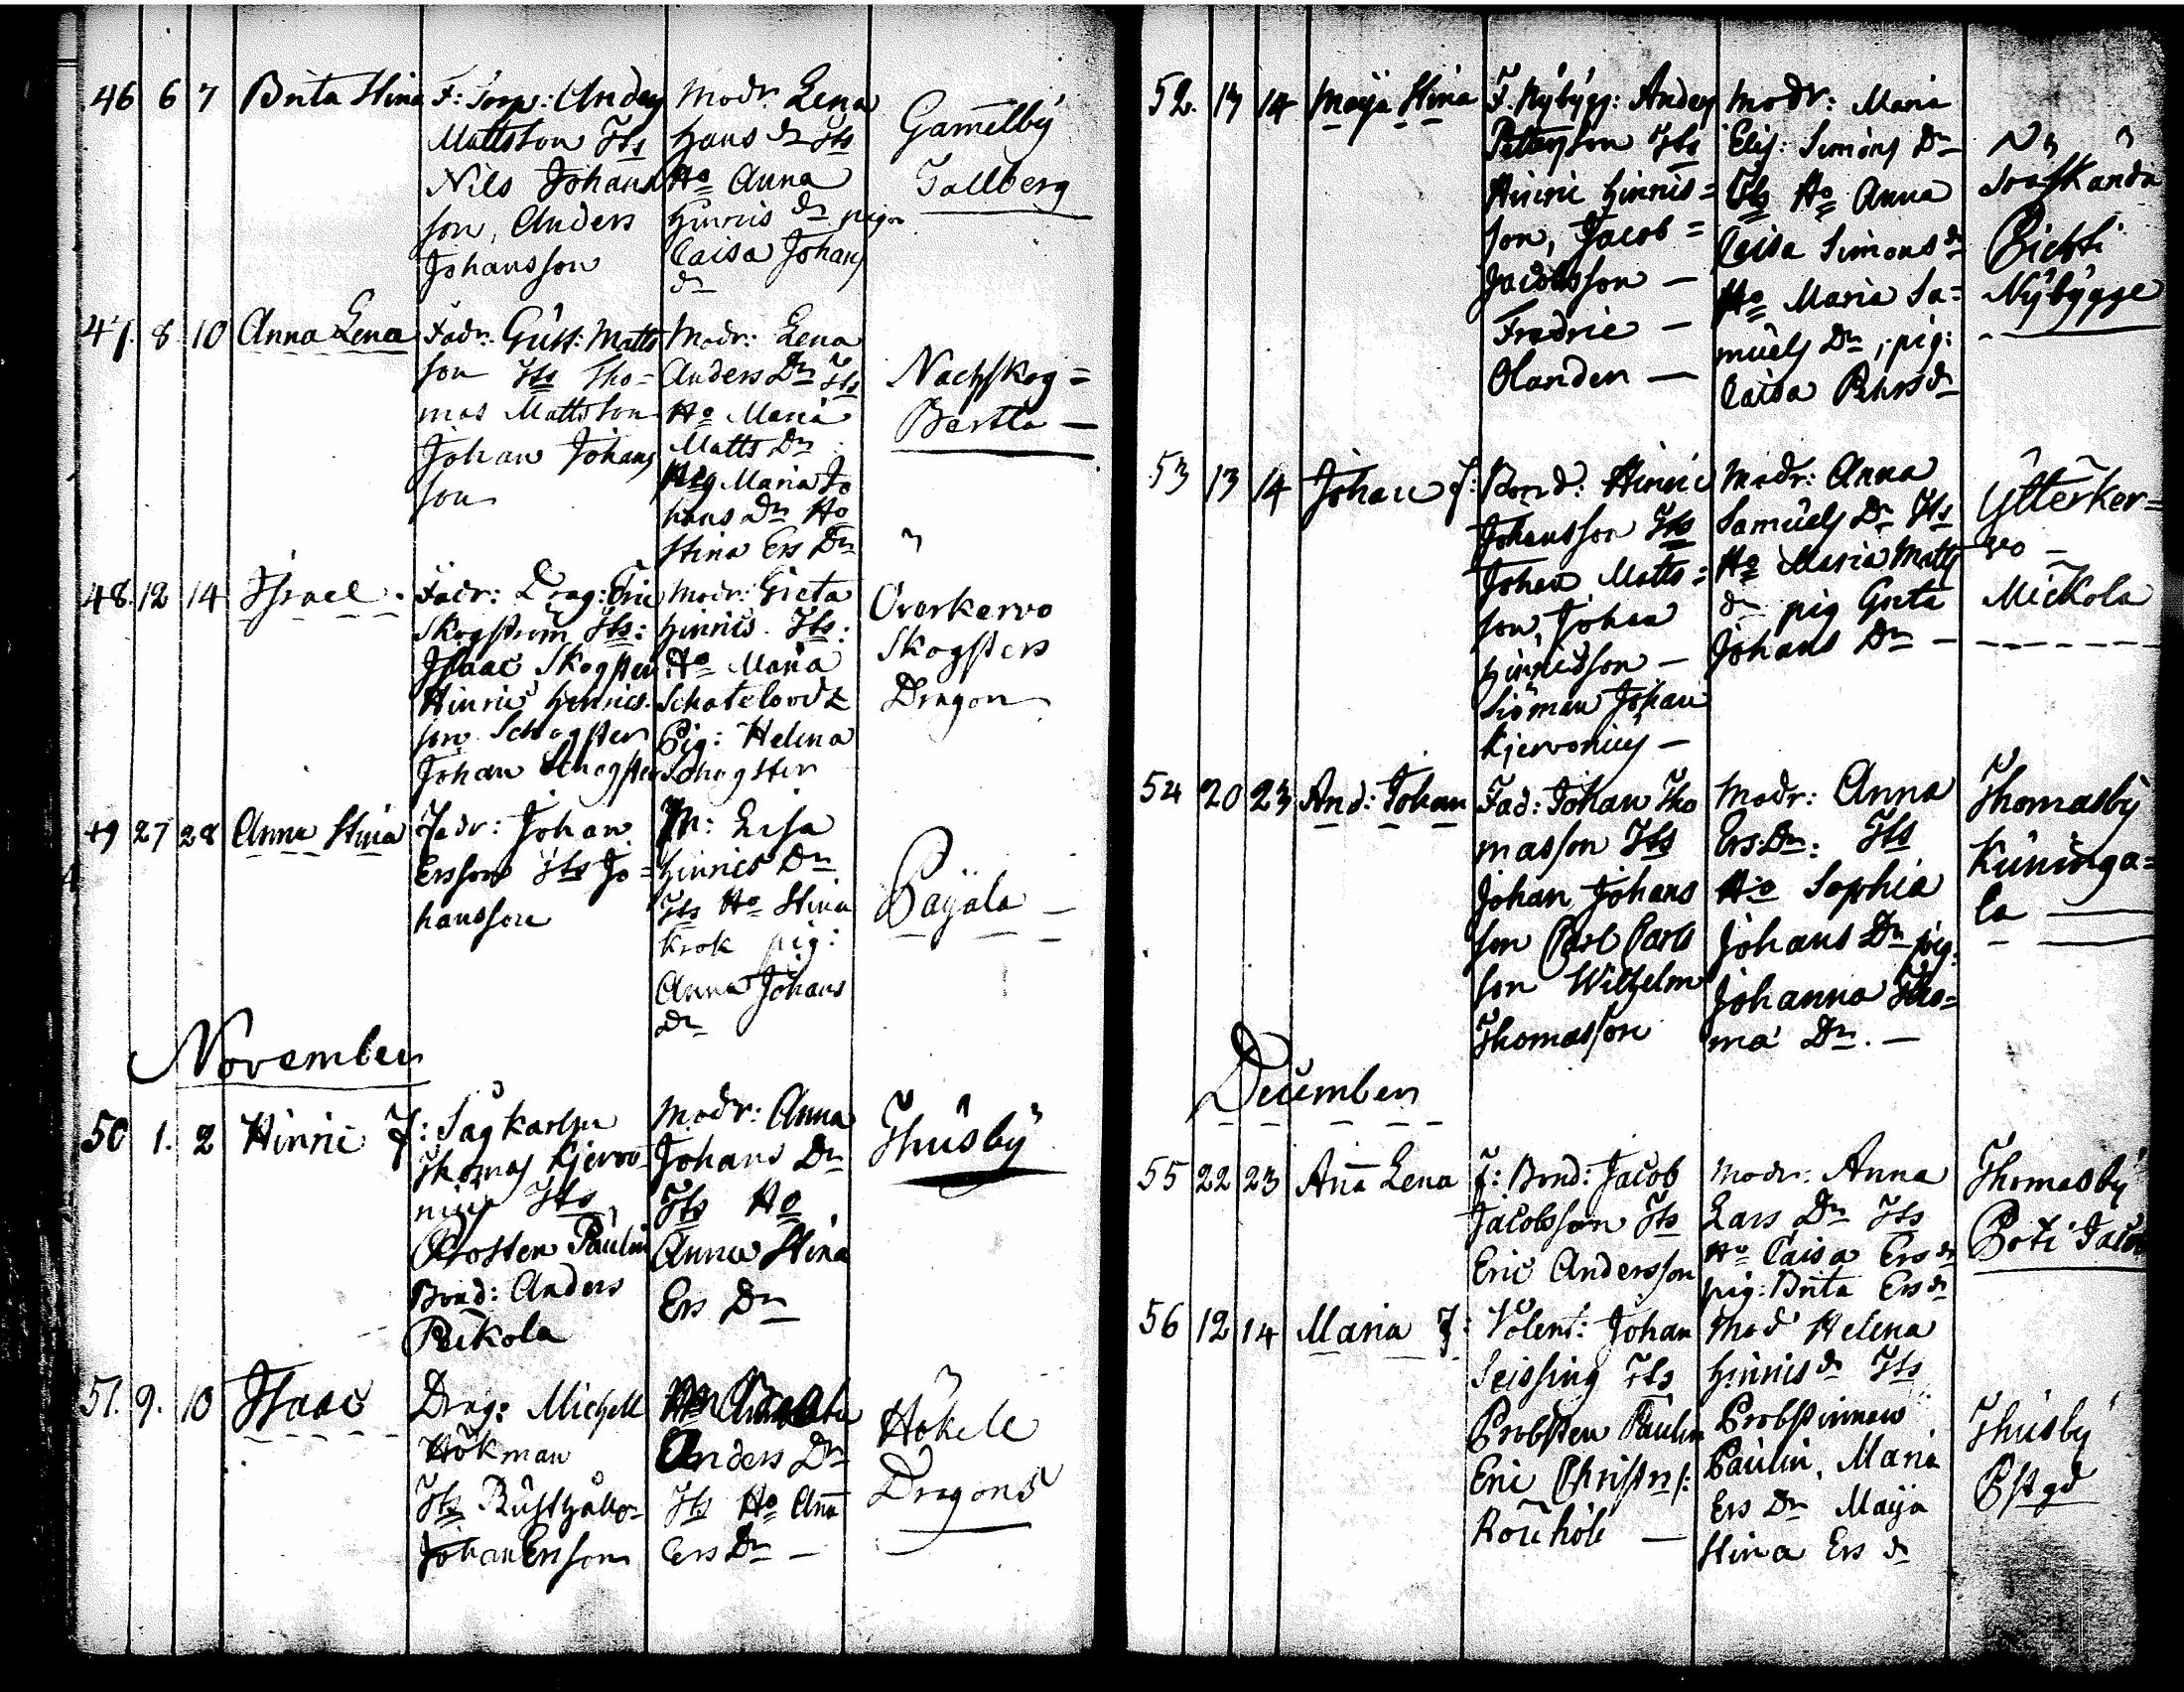 46 6 7 Brita Stina
F: Torp: Anders
Mattsson Tts
Nils Johans
son, Anders
Johansson
Modr: Lena
Hans dr Tts
Ho Anna
Hinrics dr pigan
Caisa Johans
dr
Gamelby
Tallberg
47. 8 10 Anna Lena
Fadr: Gust: Matts
son Tts Tho=
mas Mattsson
Johan Johans
son
Modr: Lena
Anders Dr Tts
Ho Maria
Matts Dr
Pig Maria Jo
hans Dr Ho
Stina Ers Dr
Bertla —
48. 12 14 Israel
Fadr: Drag: Eric
Skogström Tts:
Isaac Skogster
Hinric Henrics
son Schogster
Johan Schogster
Modr: Greta
Hinrics. Tts:
Ho Maria
Pig: Helena
Schogster
Överkervo
Skogsters
Dragon
49 27 28 Anna Stina
Fadr: Johan
Ersson Tts Jo=
hansson
M: Lisa
Hinrics Dr
Tts Ho Stina
Krok pig:
Anna Johans
Dr
Päijälä —
November
50 1. 2 Hinric
F: Sågkarlen
Thomas Kjervo
nius Tts
Prosten Paulin
Bond: Anders
Modr: Anna
Johans Dr
Tts Ho
Anna Stina
Ers Dr
Thusby
51. 9. 10 Isaac
Drag: Michell
Hökman
Tts Rusthåll
Johan Ersson
Anders Dr
Tts Ho Ana
Ers Dr —
Dragons
52. 13 14 Maja Stina
F. Nybygg: Anders
Pettersson Tts
Hinric Hinrics=
son, Jacob=
Jacobsson —
Fredric —
Olander —
Modr: Maria
Elis: Simons Dr
Tts Ho Anna
Caisa Simons dr
Ho Maria Sa=
muels Dr, pig:
Caisa
Nybygge
53 13 14 Johan
F: Bond: Hinric
Johansson Tts
Johan Matts=
son, Johan
Hinricsson —
Siöman Johan
Kjervonius —
Modr: Anna
Samuels Dr Tts
Ho Maria Matts
dr pig Greta
Johans Dr —
Ytterker=
vo —
Mickola
54 20 23 And: Johan
Fad: Johan Tho
masson Tts
Johan Johans
son Carl Carls
son Wilhelm
Thomasson
Modr: Anna
Ers:Dr: Tts
Ho Sophia
Johans Dr pig:
Johanna Tho=
ma Dr. —
Thomasby
Kuninga=
la —
December
55 22 23 Ana Lena
F: Bond: Jacob
Jacobsson Tts
Eric Andersson
Modr: Anna
Lars Dr Tts
Ho Caisa Ers dr
pig: Brita Ers dr
Thomasby
56 12 14 Maria
F: Volent: Johan
Tts
Probsten Paulin
Eric
Mod Helena
Hinrics dr Tts
Probstinnan
Paulin, Maria
Ers Dr Maija
Stina Ers dr
Thusby